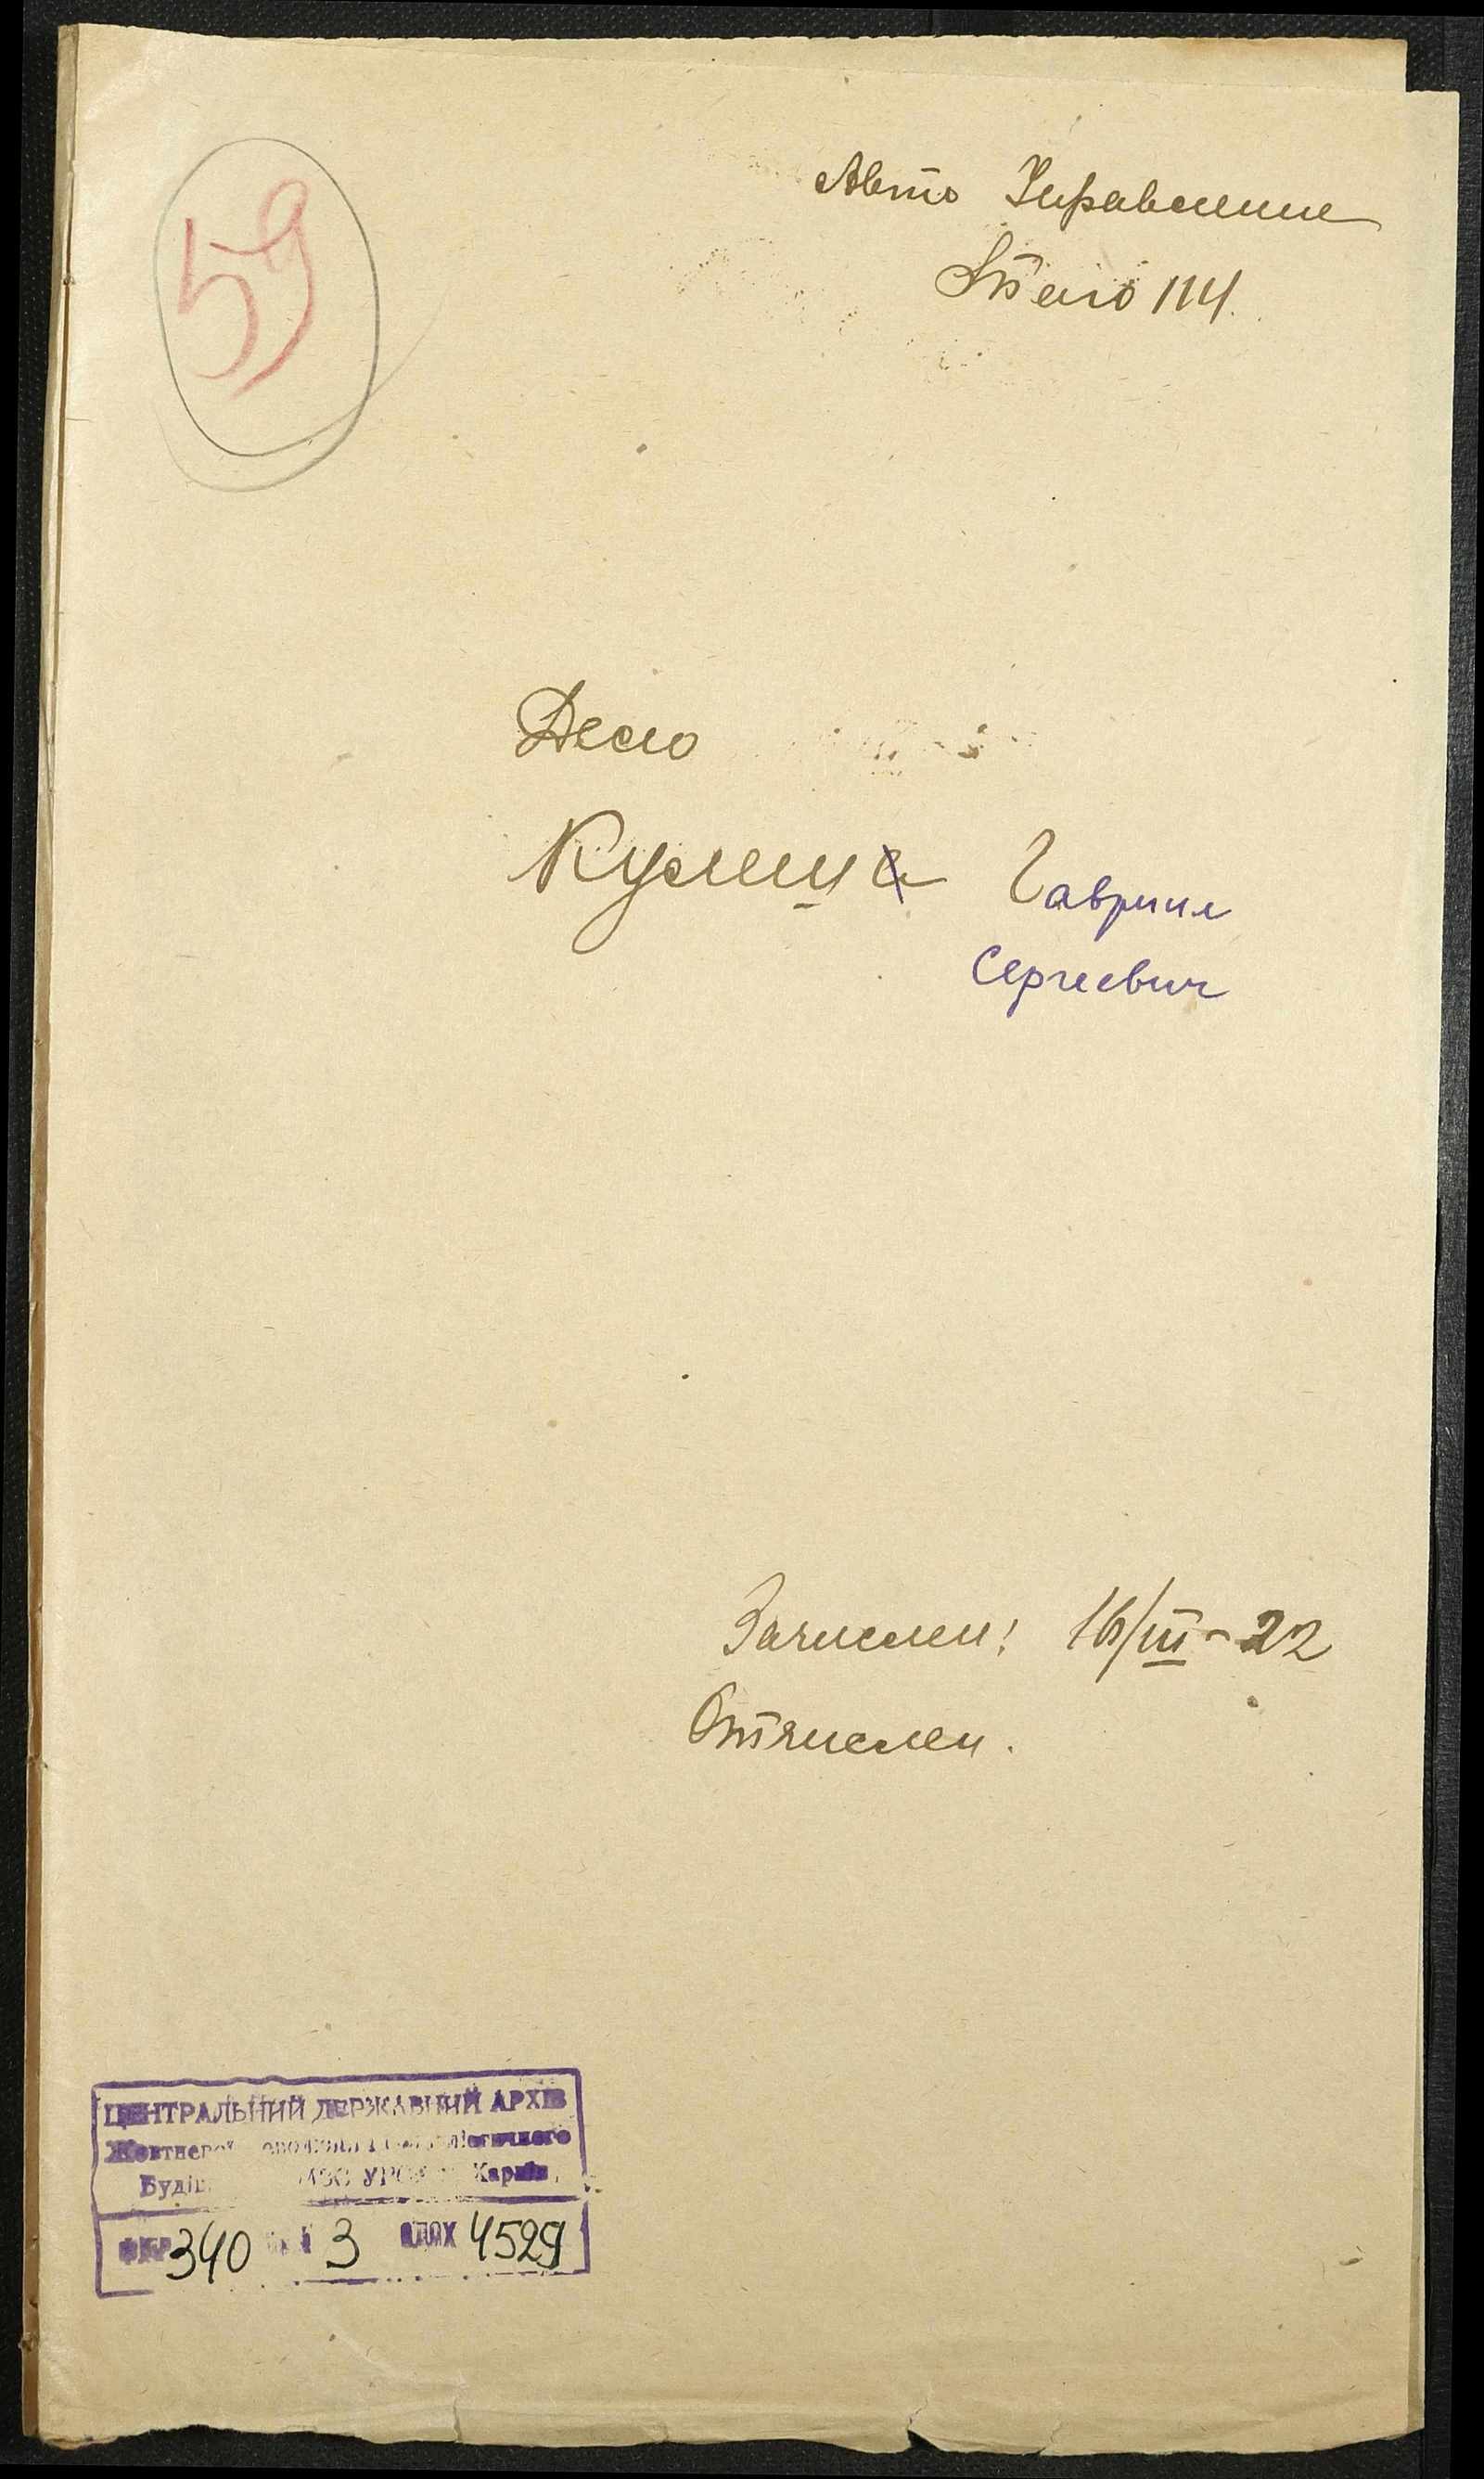 59
Авто Управление
Стол 114.
Дело
Кулеш Гавриил
Сергеевич
Зачислен: 16/III-22
Отчислен.
ЦЕНТРАЛЬНИЙ ДЕРЖАВНИЙ АРХІВ
Жовтневої
УРСР Харків
ФКР 340 3 ОД.ЗБ. 4529